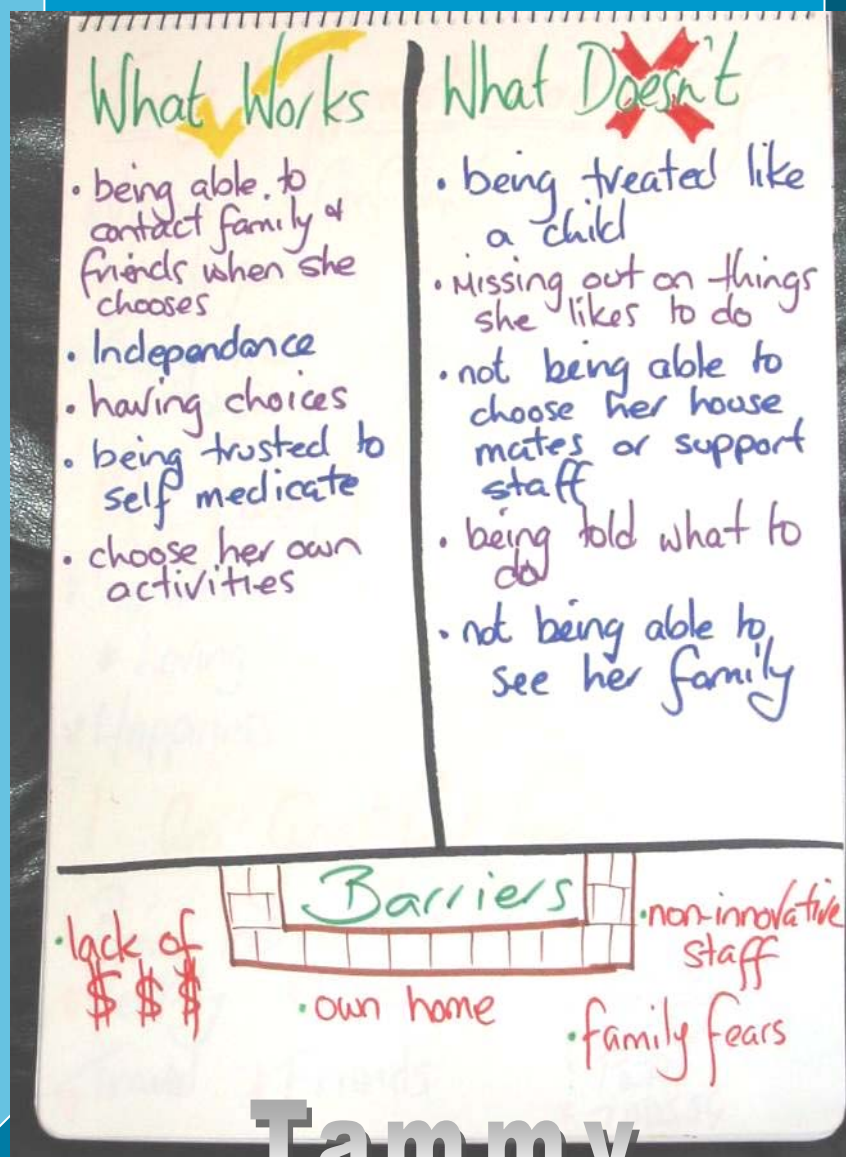 What Works
• being able. to
contact family &
friends when she
chooses
• Independance
• having choices
• being trusted to
self medicate
• choose her own
activities
What Doesn't
• being treated like
a child
• Missing out on things
she likes to do
• not being able to
choose her house
mates or support
staff
• being told what to
do
• not being able to
see her family
Barriers
• lack of
$ $ $
• own home
• non-innovative
staff
• family fears
Tammy